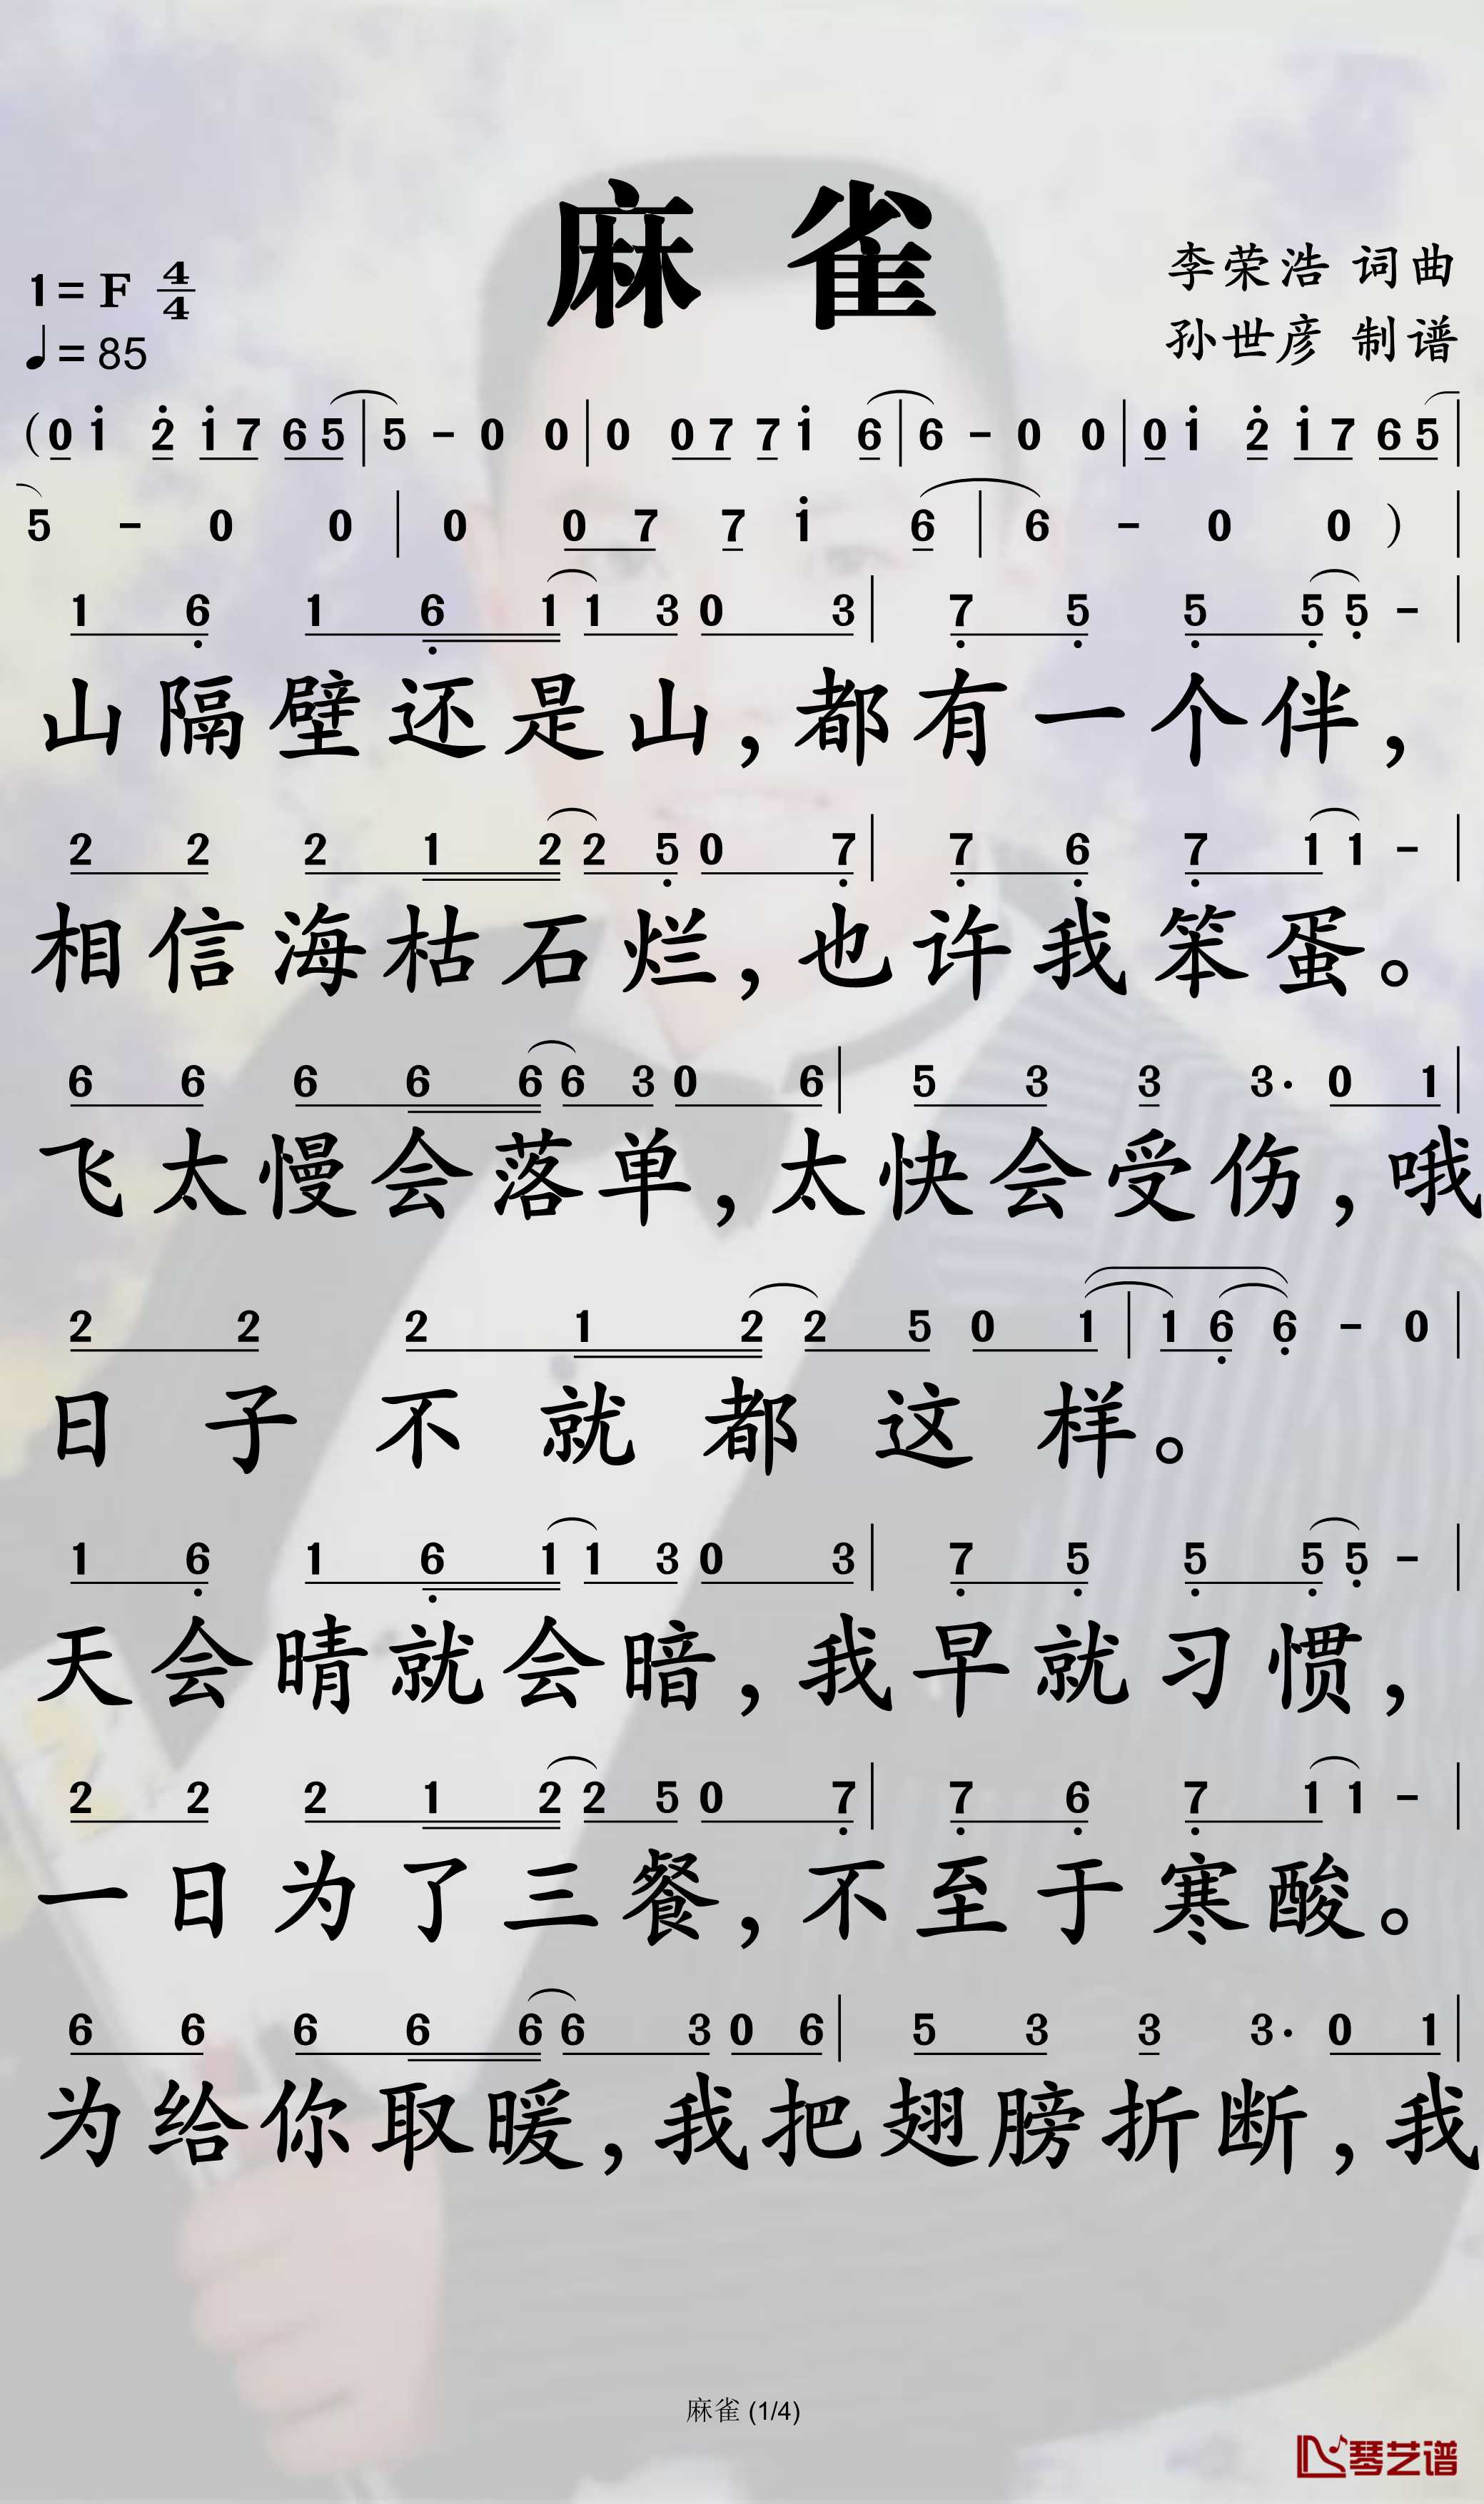 麻雀
1=F 4/4
♩=85
李荣浩 词曲
孙世彦 制谱
(0 1 2 1 7 6 5 | 5 - 0 0 | 0 0 7 7 1 6 | 6 - 0 0 | 0 1 2 1 7 6 5 |
5 - 0 0 | 0 0 7 7 1 6 | 6 - 0 0 ) |
1 6 1 6 1 1 3 0 3 | 7 5 5 5 5 - |
山隔壁还是山,都有一个伴,
2 2 2 1 2 2 5 0 7 | 7 6 7 1 1 - |
相信海枯石烂,也许我笨蛋。
6 6 6 6 6 6 3 0 6 | 5 3 3 3· 0 1 |
飞太慢会落单,太快会受伤,哦
2 2 2 1 2 2 5 0 1 | 1 6 6 - 0 |
日子不就都这样。
1 6 1 6 1 1 3 0 3 | 7 5 5 5 5 - |
天会晴就会暗,我早就习惯,
2 2 2 1 2 2 5 0 7 | 7 6 7 1 1 - |
一日为了三餐,不至于寒酸。
6 6 6 6 6 6 3 0 6 | 5 3 3 3· 0 1 |
为给你取暖,我把翅膀折断,我
麻雀 (1/4)
琴艺谱